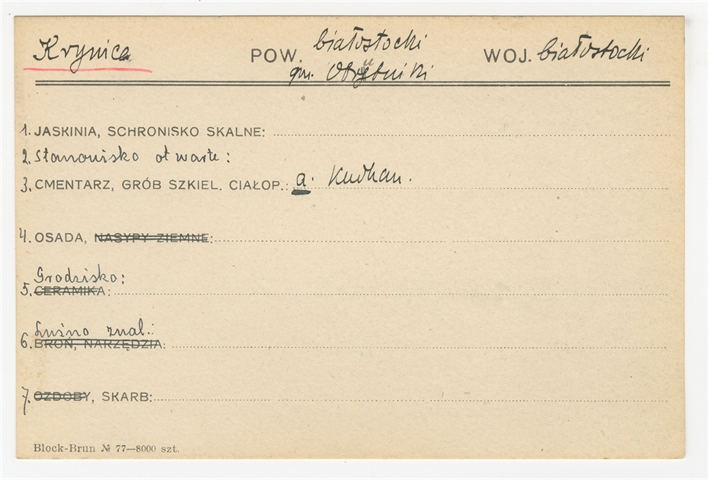 Krynica POW. białostocki WOJ. białostocki
gm. Obrębniki
1. JASKINIA, SCHRONISKO SKALNE:
2. Stanowisko otwarte:
3. CMENTARZ, GRÓB SZKIEL, CIAŁOP.: a. Kurhan.
4. OSADA, NASYPY ZIEMNE:
Grodzisko:
5. CERAMIKA:
Luźno znal.:
6. BROŃ, NARZĘDZIA:
7. OZDOBY, SKARB:
Block-Brun № 77—8000 szt.